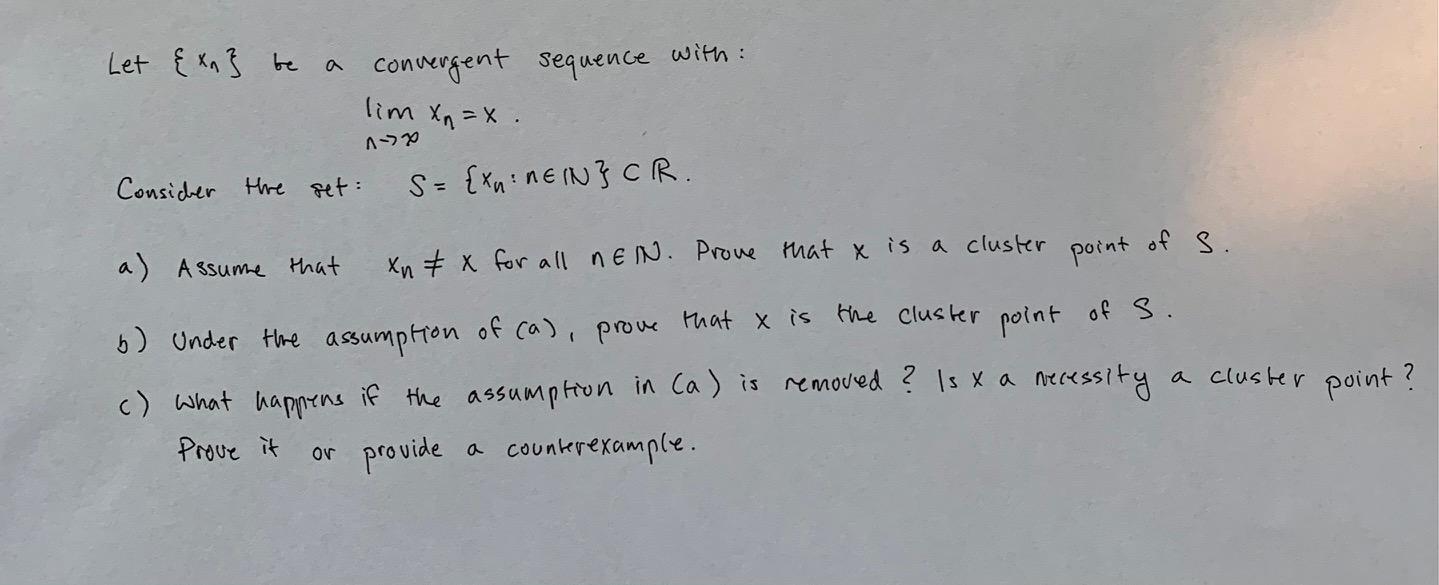 Let {xn} be a convergent sequence with:
lim xn = x.
n->∞
Consider the set: S = {xn: n∈ℕ} ⊂ ℝ.
a) Assume that xn ≠ x for all n∈ℕ. Prove that x is a cluster point of S.
b) Under the assumption of (a), prove that x is the cluster point of S.
c) What happens if the assumption in (a) is removed? Is x a necessity a cluster point?
Prove it or provide a counterexample.